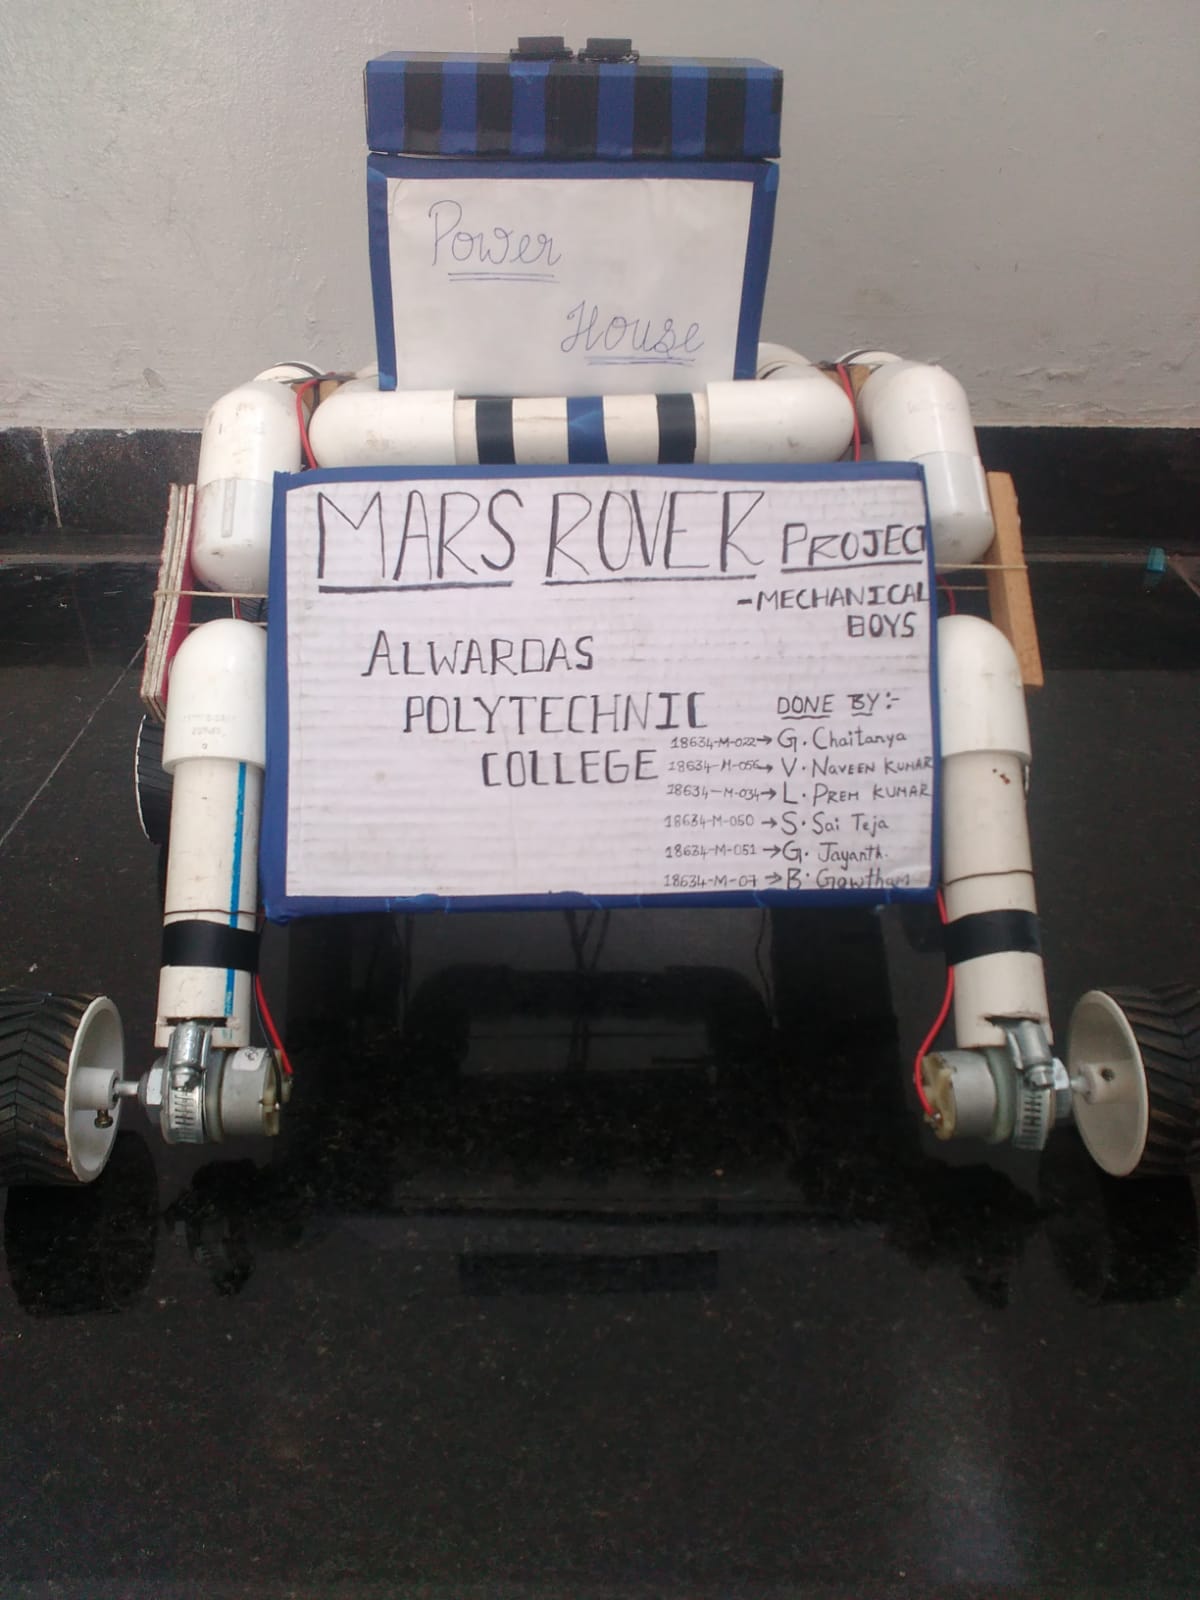 Power
House
MARS ROVER PROJECT
-MECHANICAL
BOYS
ALWARDAS
POLYTECHNIC
COLLEGE
DONE BY:-
18634-M-022→ G. Chaitanya
18634-M-056→ V. NAVEEN KUMAR
18634-M-034→ L. PREM KUMAR
18634-M-050 → S. Sai Teja
18634-M-051 → G. Jayanth.
18634-M-07 → B. Gowtham